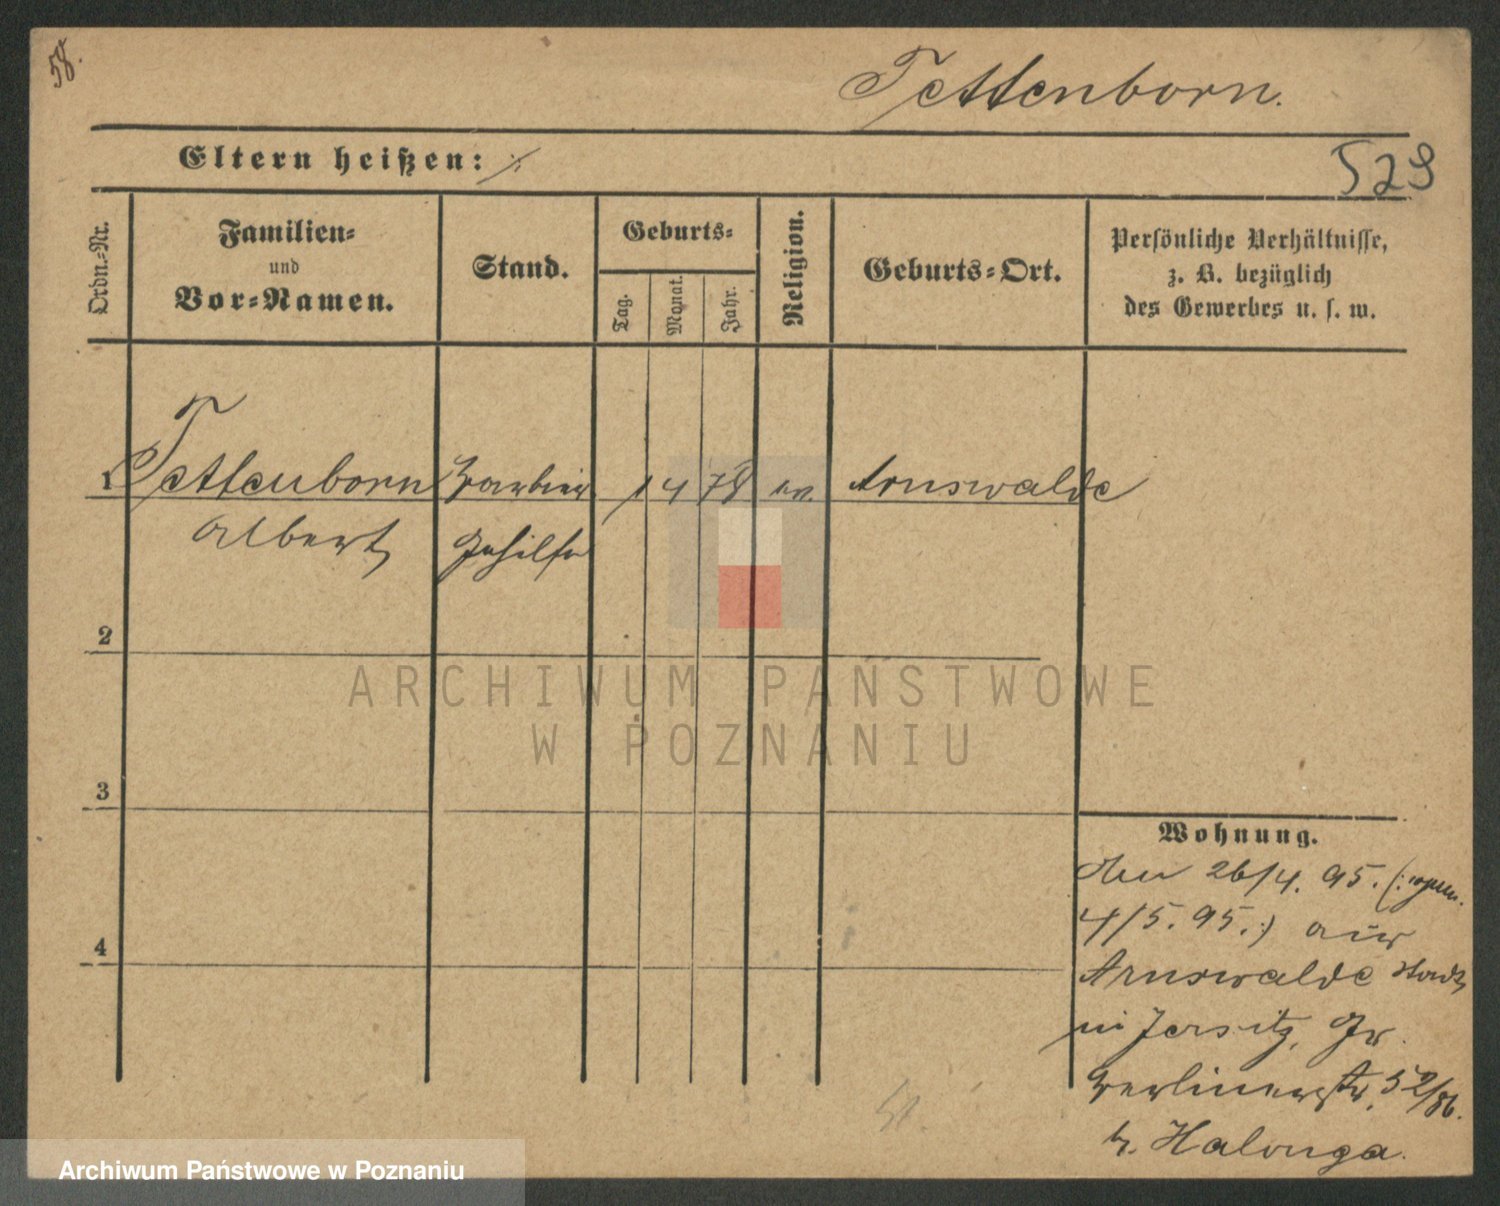 58.
Tettenborn.
Eltern heißen: ./.
529
Ordn.-Nr.
Familien-
und
Vor-Namen.
Stand.
Geburts-
Tag.
Monat.
Jahr.
Religion.
Geburts-Ort.
Persönliche Verhältnisse,
z. B. bezüglich
des Gewerbes u. s. w.
1 Tettenborn Barbier 1 4 78 ev. Arnswalde
Albert Gehilfe
2
ARCHIWUM PAŃSTWOWE
W POZNANIU
3
4
Wohnung.
Den 26/4. 95. (:
4/5. 95.:) aus
Arnswalde Stadt
in Jersitz, Gr.
Berlinerstr. 52/86.
b. Halonga.
Archiwum Państwowe w Poznaniu